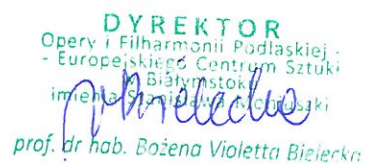 DYREKTOR
Opery i Filharmonii Podlaskiej -
- Europejskiego Centrum Sztuki
w Białymstoku
imienia Stanisława Moniuszki
prof. dr hab. Bożena Violetta Bielecka